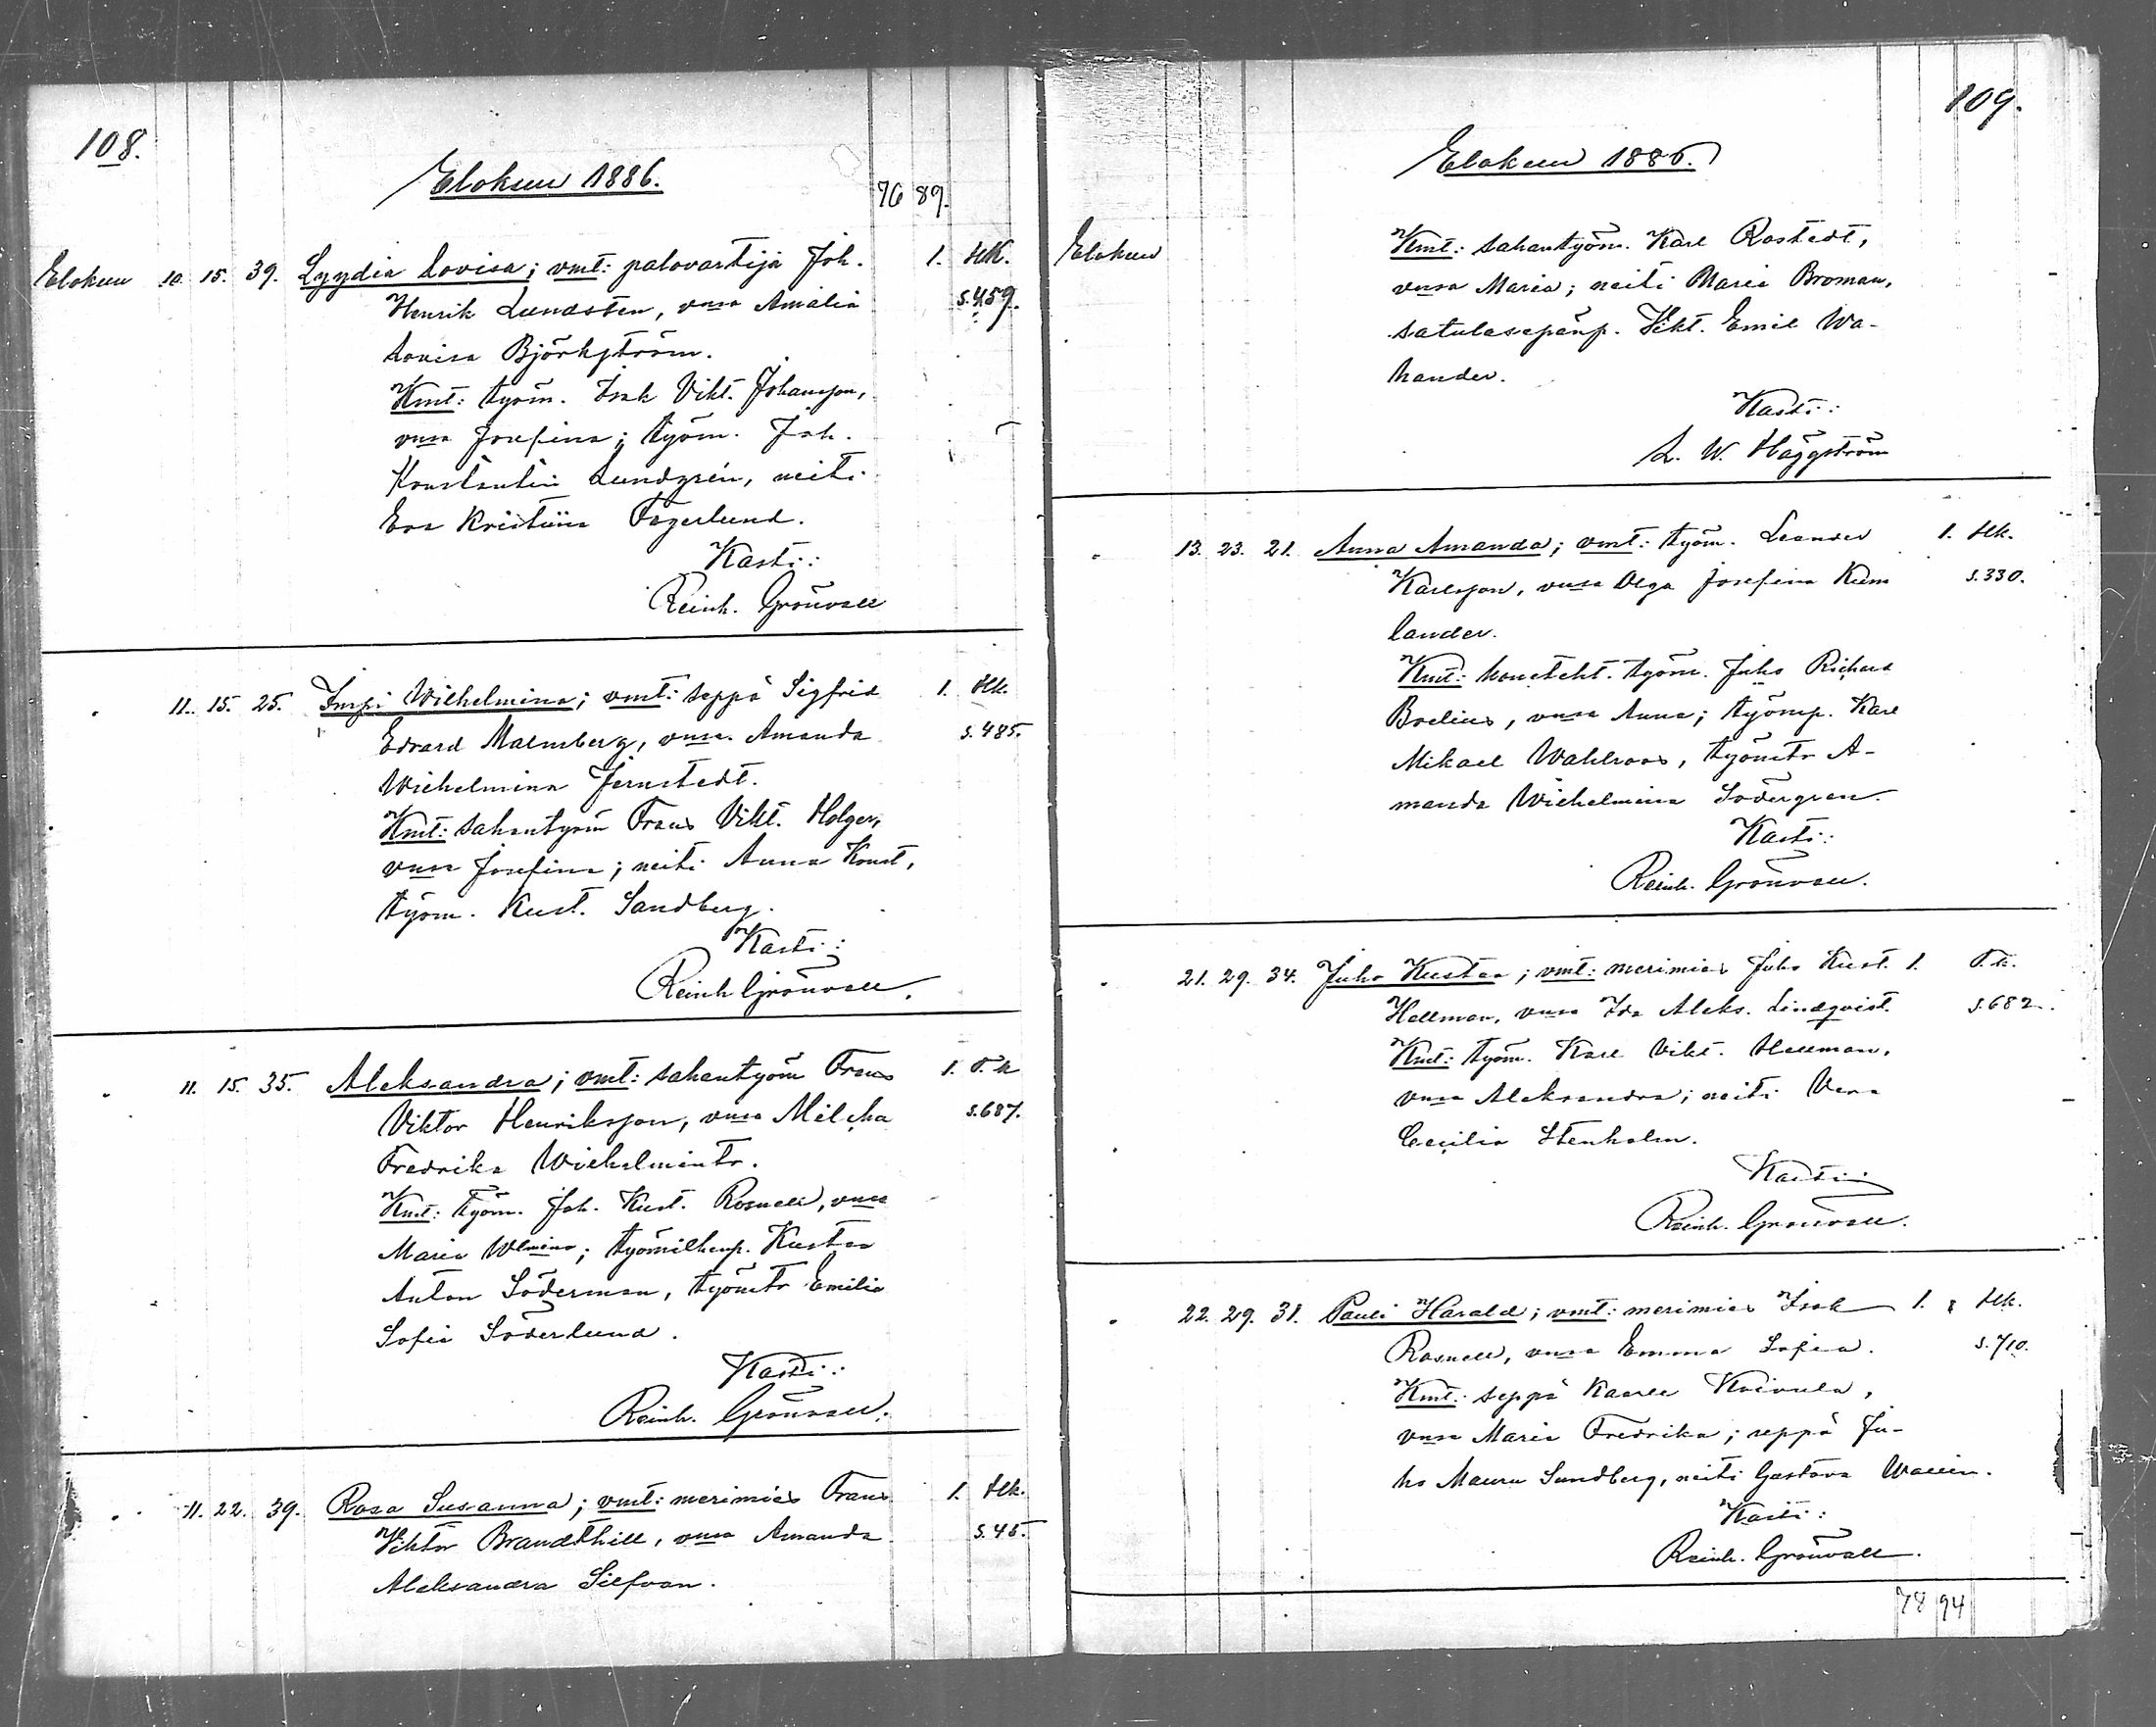 108.
Elokuu 1886.
76 89.
Elokuu 10. 15. 39. Lyydia Lovisa; vmt: palovartija Joh. 1. Hk.
Henrik Lundsten, vmsa Amalia s.459.
Lovisa Björkström.
Kmt: työm. Isak Vikt. Johansson,
vmsa Josefina; työm. Joh.
Konstantin Lundgrén, neiti
Eva Kristiina Fagerlund.
Kasti:
Reinh. Grönvall
11. 15. 25. Impi Wilhelmina; vmt: seppä Sigfrid 1. Hk.
Edvard Malmberg, vmsa Amanda s.485.
Wilhelmina Jernstedt.
Kmt: sahantyöm Frans Vikt. Holger,
vmsa Josefina; neiti Anna Konst,
työm. Kust. Sandberg.
Kasti:
Reinh Grönvall.
11. 15. 35. Aleksandra; vmt: sahantyöm Frans 1. T.k
Viktor Henriksson, vmsa Milcha s.687.
Fredrika Wilhelmintr.
Kmt: työm. Joh. Kust. Rosnell, vmsa
Maria Wlmina; työmilhenp. Kustaa
Anton Söderman, työmtr Emilia
Sofia Söderlund.
Kasti:
Reinh. Grönvall.
11. 22. 39. Rosa Susanna; vmt: merimies Frans 1. Hk.
Viktor Brandthill, vmsa Amanda s.45.
Aleksandra Silfvan.
109.
Elokuu 1886.
Elokuu Kmt: sahantyöm. Karl Rostedt,
vmsa Maria; neiti Maria Broman,
satulasepänp. Vikt. Emil Wa-
hander.
Kasti:
L. W. Häggström
13. 23. 21. Anna Amanda; vmt: työm. Leander 1. Hk.
Karlsson, vmsa Olga Josefina Kum s.330.
lander.
Kmt: koneteht. työm. Juho Richard
Bodius, vmsa Anna; työmp. Karl
Mikael Wahlroos, työmtr A-
manda Wilhelmina Södergran.
Kasti:
Reinh. Grönvall.
21. 29. 34. Juho Kustaa; vmt: merimies Juho Kust. 1. T.k.
Hellman, vmsa Ida Aleks. Lindqvist. s.682.
Kmt: työm. Karl Vikt. Hellman,
vmsa Aleksandra; neiti Vera
Cecilia Stenholm.
Kasti:
Reinh. Grönvall.
22. 29. 31. Pauli Harald; vmt: merimies Isak 1. Hk.
Rosnell, vmsa Emma Sofia. s.710.
Kmt: seppä Kaarle Koivula,
vmsa Maria Fredrika; seppä Ju-
ho Mauru Sundberg, neiti Gustava Wallin.
Kasti:
Reinh. Grönvall.
78 94